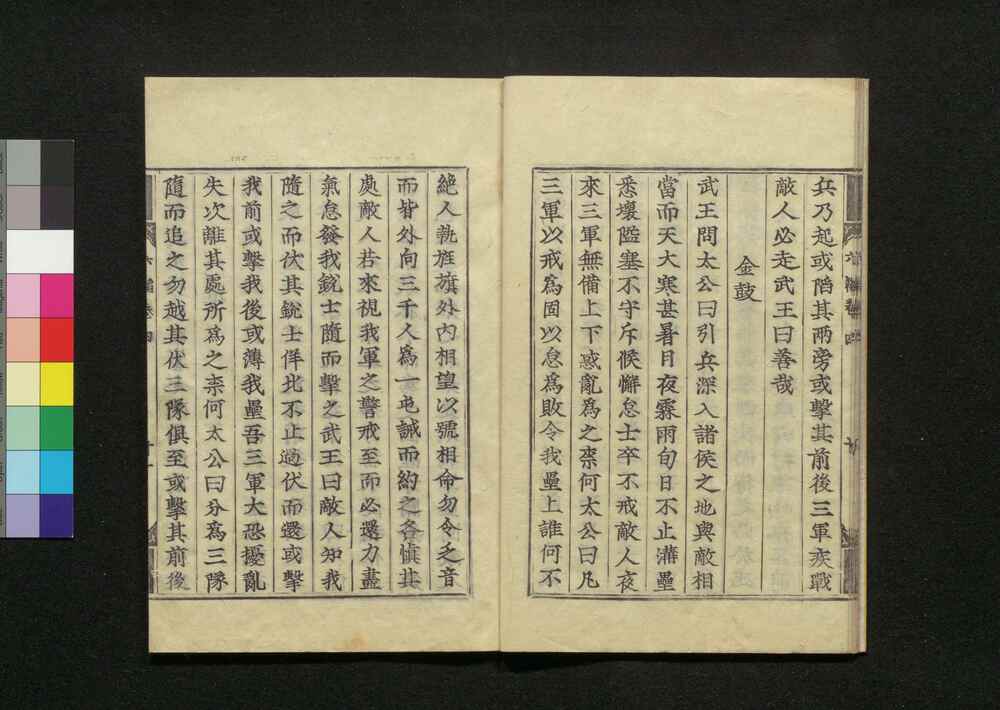 兵乃起或陷其兩旁或擊其前後三軍疾戰
敵人必走武王曰善哉
金鼓
武王問太公曰引兵深入諸侯之地與敵相
當而天大寒甚暑日夜霖雨旬日不止溝壘
悉壞隘塞不守斥候懈怠士卒不戒敵人夜
來三軍無備上下惑亂爲之柰何太公曰凡
三軍以戒爲固以怠爲敗令我壘上誰何不
絶人執旌旗外內相望以號相命勿令乏音
而皆外向三千人爲一屯誡而約之各愼其
處敵人若來視我軍之警戒至而必還力盡
氣怠發我銳士隨而擊之武王曰敵人知我
隨之而伏其銳士佯北不止過伏而還或擊
我前或擊我後或薄我壘吾三軍大恐擾亂
失次離其處所爲之柰何太公曰分爲三隊
隨而追之勿越其伏三隊俱至或擊其前後